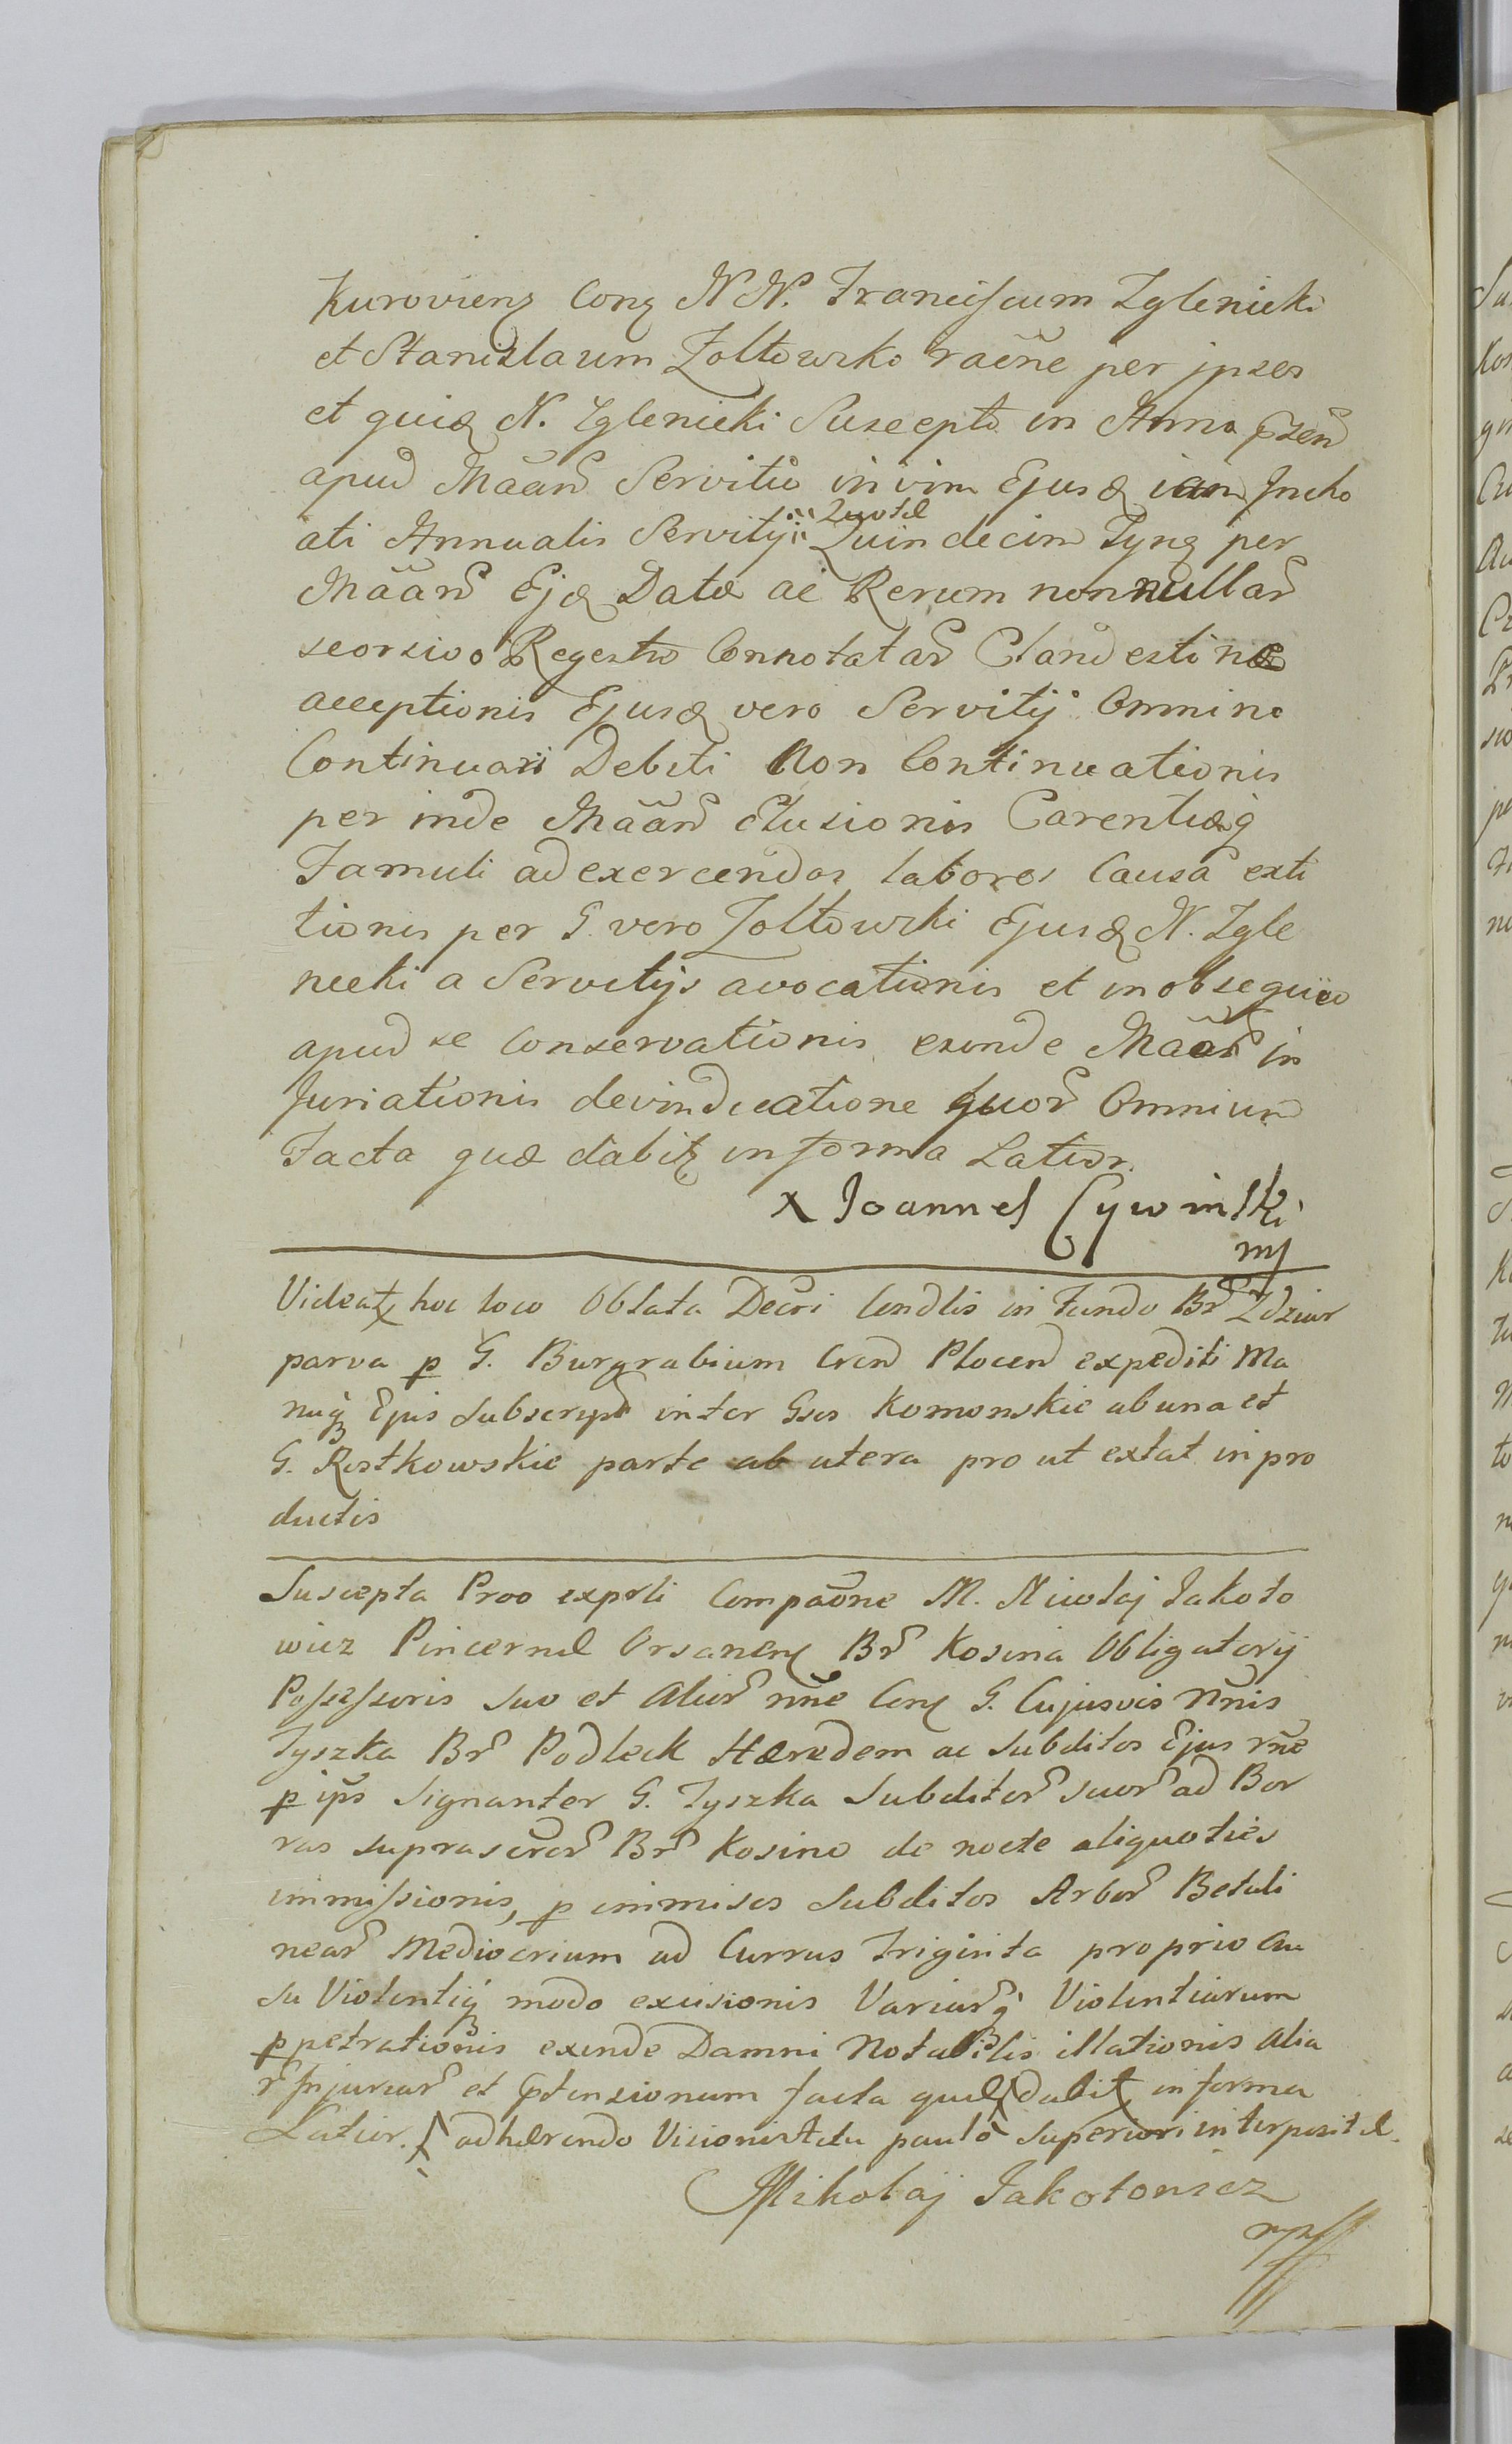 Kuroviens Cong NN. Franciscum Zglenicki
et Stanislaum Zoltowsko rãene per jpses
et quid N. Zglenicki Suscepto in Anno psen
apud Mãan Servitio in vim Ejusd iam Jncho
ati Annualis Servitij Quotae Quindecim Tynq per
Mãan Ejq Datae ac Rerum nonnullar
seorsivo Regestro Connotatar Clandestinae
acceptionis Ejusd vero Servitij Omnino
Continuari Debiti Non Continuationis
per inde Mãan Elusionis Carentiaeq
Famuli ad exercendos labores Causa exti
tionis per G. vero Zoltowski Ejusd N. Zgle
nicki a Servitijs avocationis et in obsequio
apud se Conservationis exinde Mãan in
Juriationis devindicatione quor Omnium
Facta quae dabitz in forma Latior.
X Joannes Cywinski
mj
Videatz hoc loco Oblata Decri Condlis in Fundo Br Zdziar
parva p G. Burgrabium Cren Plocen expediti Ma
nuq Ejus Subscrip inter Gsos Komonskie ab una et
G. Rostkowskie parte ab altera pro ut extat in pro
ductis
Suscepta Proo exprli Compaone M. Nicolaj Jakoto
wicz Pincernae Orsanens Br Kosina Obligatorij
Possessoris Suo et Alior nne Cong G. Cujusvis Nnis
Tyszka Br Podleck Haeredem ac Subditos Ejus rne
p ips Signanter G. Tyszka Subditor suor ad Bor
ras suprascrer Br Kosino de nocte aliquoties
immissionis, p inmisos Subditos Arbor Betuli
near Mediocrium ad Currus Triginta proprio au
su Violentiq modo excisionis Variarq Violentiarum
ppetrationis exinde Damni Notabilis illationis alia
r Injuriar et Ptensionum facta quae dabitz in forma
Latior. adhaerendo Visionis Actu paulò Superiori interpositae.
Mikołaj Jakotowicz
mp